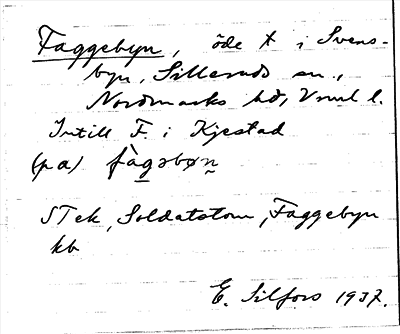 Faggebyn, öde x i Svens-
byn, Silleruds sn.,
Nordmarks hd, Vrml l.
Intill F. i Kjestad
(på) fàgəbøn
STek, Soldattorn, Faggebyn
kb
E. Silfors 1937.